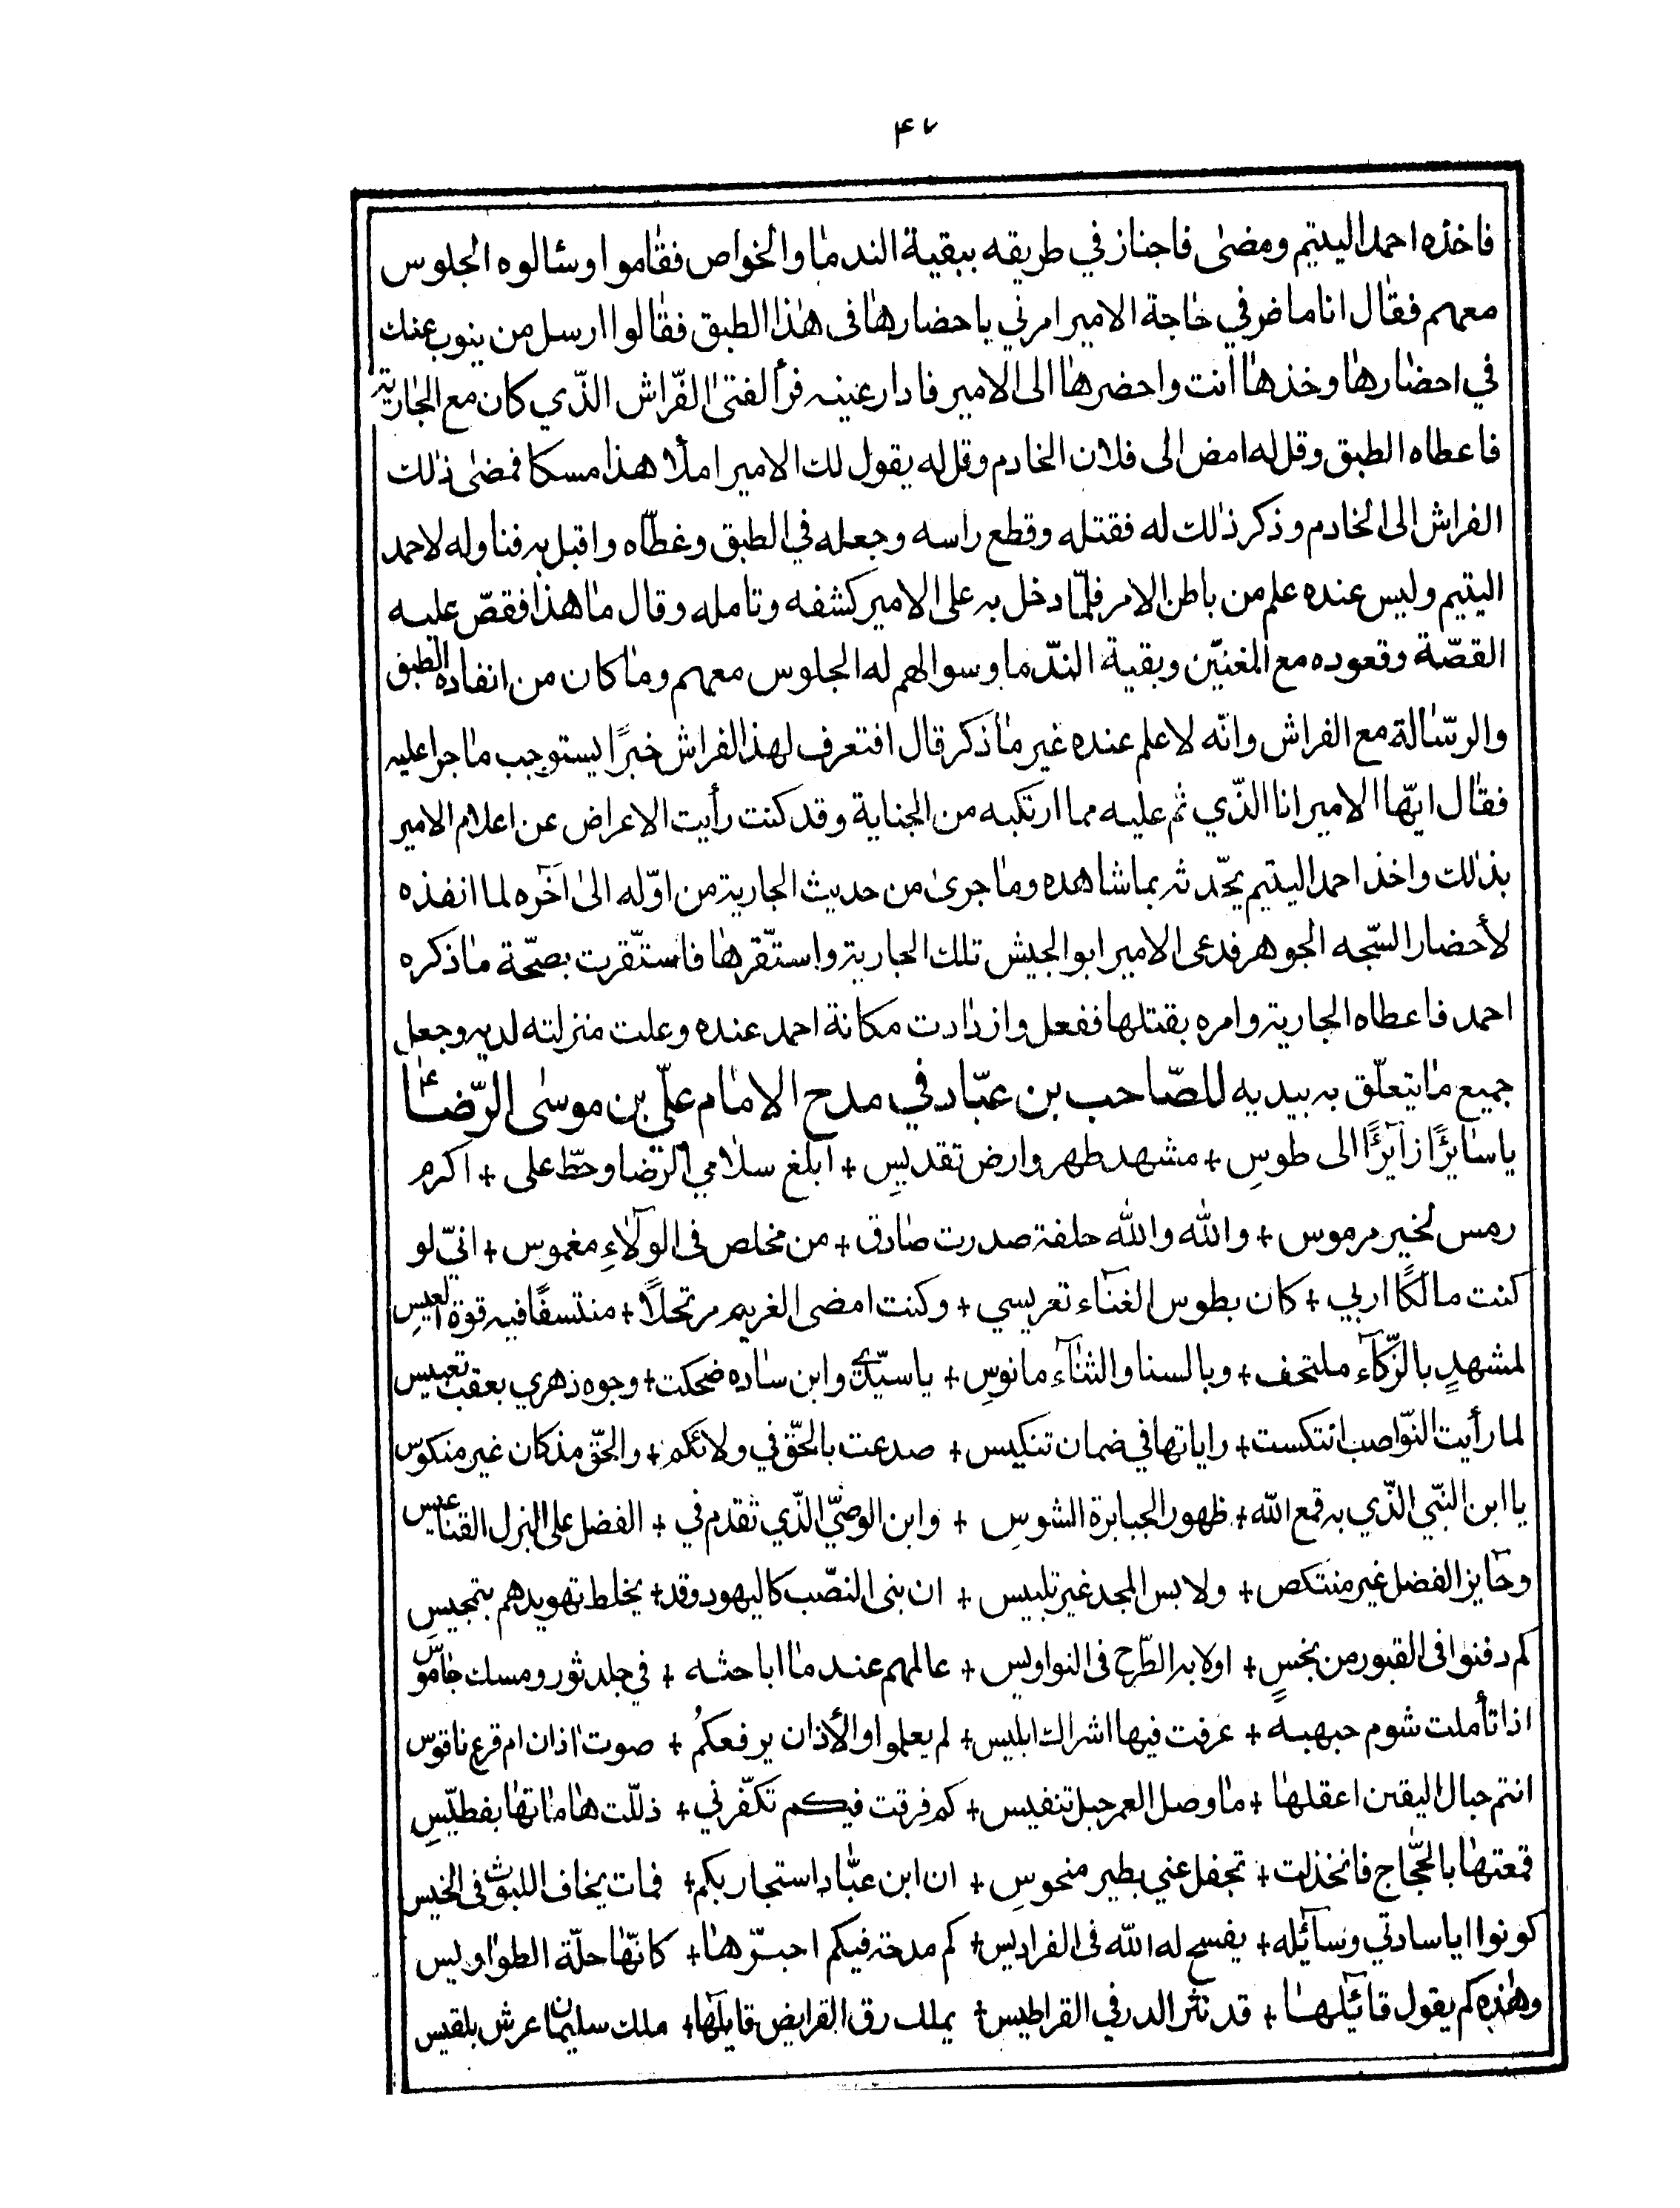 ۴۷
فاخذه احمد اليتيم ومضىٰ فاجناز في طريقه ببقية الندمٰا والخواص فقٰاموا وسٔالوه الجلوس
معهم فقٰال انا ماض في حٰاجة الامير امرني باحضارهٰا فى هٰذا الطبق فقٰالوا ارسل من ينوب عنك
في احضٰارهٰا وخذهٰا انت واحضرهٰا الى الامير فادار عينه فرأ الفتىٰ الفّراش الذّي كان مع الجٰارية
فاعطاه الطبق وقل له امض الى فلان الخادم وقل له يقول لك الامير املأ هذا مسكا فمضىٰ ذٰلك
الفراش الى الخادم وذكر ذٰلك له فقتله وقطع راسه وجعله في الطبق وغطّاه واقبل به فناوله لاحمد
اليتيم وليس عنده علم من باطن الامر فلمّا دخل به على الامير كشفه وتامله وقال مٰا هذا فقصّ عليه
القصّة وقعوده مع المغنيّن وبقية الندّما وسوالهم له الجلوس معهم ومٰا كان من انفاده الطبق
والرسّٰالة مع الفراش وانّه لا علم عنده غير مٰا ذكر قال افتعرف لهذا الفراش خبرًا يستوجب مٰا جرا عليه
فقٰال ايّها الامير انا الذّي ثم عليه مما ارتكبه من الجناية وقد كنت رأيت الاعراض عن اعلام الامير
بذٰلك واخذ احمد اليتيم يحّدثه بما شاهده ومٰا جرىٰ من حديث الجارية من اوّله الىٰ آخره لما انفذه
لأحضار السّبحه الجوهر فدعى الامير ابو الجيش تلك الجارية واستّقرهٰا فاستّقرت بصحّة مٰا ذكره
احمد فاعطاه الجارية وامره بقتلها ففعل وازدٰادت مكانة احمد عنده وعلت منزلته لديه وجعل
جميع مٰا يتعلّق به بيديه للصّاحب بن عبّاد في مدح الامٰام علىّ بن موسٰى الرّضٰا ع
يا سٰايرًا زآئرًا الى طوسِ + مشهد طهر وارض تقديسِ + ابلغ سلٰامي الرّضا وحطّ على + اكرم
رمس لخير مرموس + والله والله حلفة صدرت صٰادق + من مخلص فى الولآءِ مغموس + انيّ لو
كنت مالكًا اربي + كان بطوس الغنآء تعريسي + وكنت امضى الغريم مرتحلاً + منتسفًا فيه قوة العيسِ
لمشهدٍ بالزّكآء ملتحف + وبالسنا والثنٰآء مانوسِ + يا سيّدي وابن سٰاده ضحكت + وجوه دهري بعقب تعبيس
لما رأيت النّواصب انتكست + راياتها في ضمان تنكيس + صدعت بالحّق في ولائكم + والحّق مذ كان غير منكوس
يا ابن النّبي الذّي به قمع الله + ظهور الجبابرة الشوسِ + وابن الوصيّ الذّي تقدم في + الفضل على البزل القناعيس
وحٰايز الفضل غير منتكص + ولابس المجد غير تلبيس + ان بنى النصّب كاليهود وقد + يخلط تهويدهم بتمجيسِ
كم دفنوا فى القبور من نجسٍ + اولا به الطّرح فى النواويس + عالمهم عند مٰا اباحثه + في جلد ثور ومسك جٰاموس
اذا تأملت شوم جبهبه + عرفت فيها اشراك ابليس + لم يعلموا والأذان يرفعكمُ + صوت اذان ام قرع ناقوس
انتم حبال اليقين اعقلها + مٰا وصل العمر حبل تنفيس + كم فرقت فيكم تكفّرني + ذللّت هٰامٰاتهٰا بفطيّسِ
قمعتهٰا بالحّجاج فانخذلت + تجفل عني بطير منحوسِ + ان ابن عبّاد استجار بكم + فمات يخاف الليوث فى الخيس
كونوا ايا سادتي وسآئله + يفسح له الله فى الفراديس + كم مدحة فيكم احبّرهٰا + كانّهٰا حلّة الطوٰاويس
وهٰذه كم يقول قائلهٰا + قد نثر الدر في القراطيس + يملك رق القرايض قايلها + ملك سليمٰان عرش بلقيس